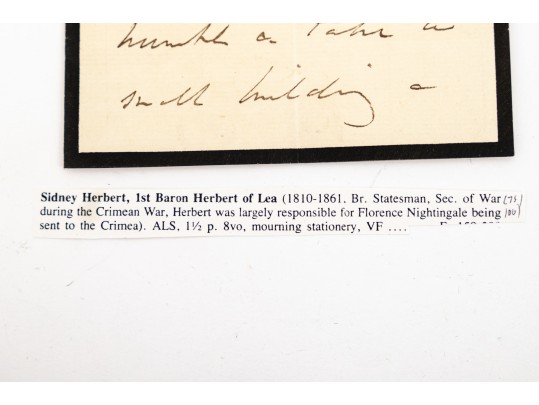 humble or take a
small building a
Sidney Herbert, 1st Baron Herbert of Lea (1810-1861. Br. Statesman, Sec. of War
during the Crimean War, Herbert was largely responsible for Florence Nightingale being
sent to the Crimea). ALS, 1½ p. 8vo, mourning stationery, VF ....